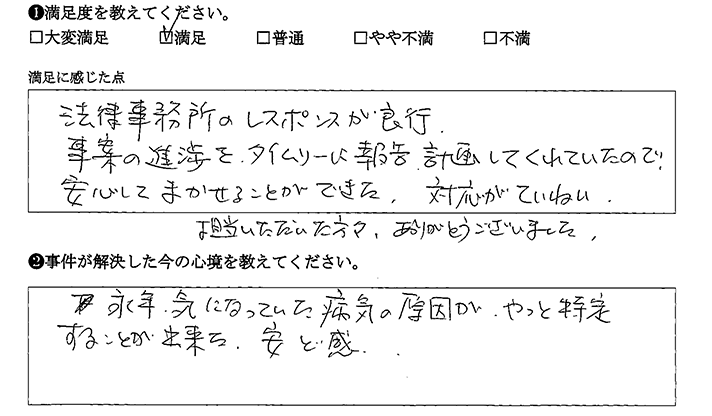 ❶満足度を教えてください。
□大変満足 ☑満足 □普通 □やや不満 □不満
満足に感じた点
法律事務所のレスポンスが良行.
事案の進渉を、タイムリーに報告、計画してくれていたので、
安心してまかせることができた。 対応がていねい.
担当いただいた方々、ありがとうございました。
❷事件が解決した今の心境を教えてください。
永年、気になっていた病気の原因が、やっと特定
することが出来た。安ど感.